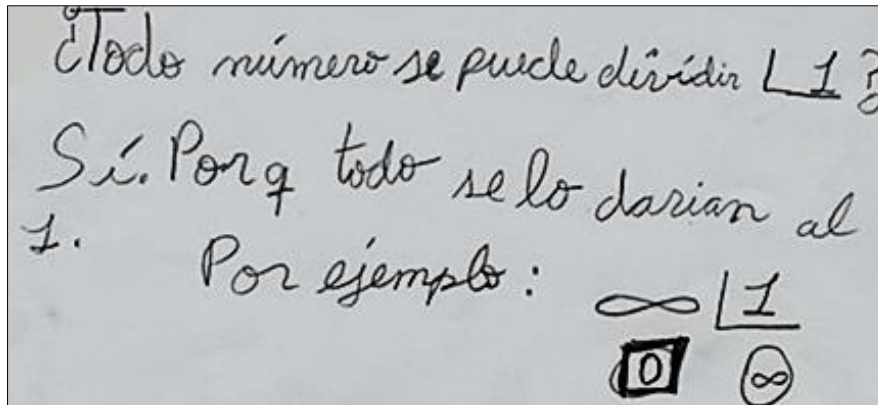 ¿Todo número se puede dividir 1?
Sí. Porq todo se lo darian al
1.
Por ejemplo:
∞ 1
0 ∞